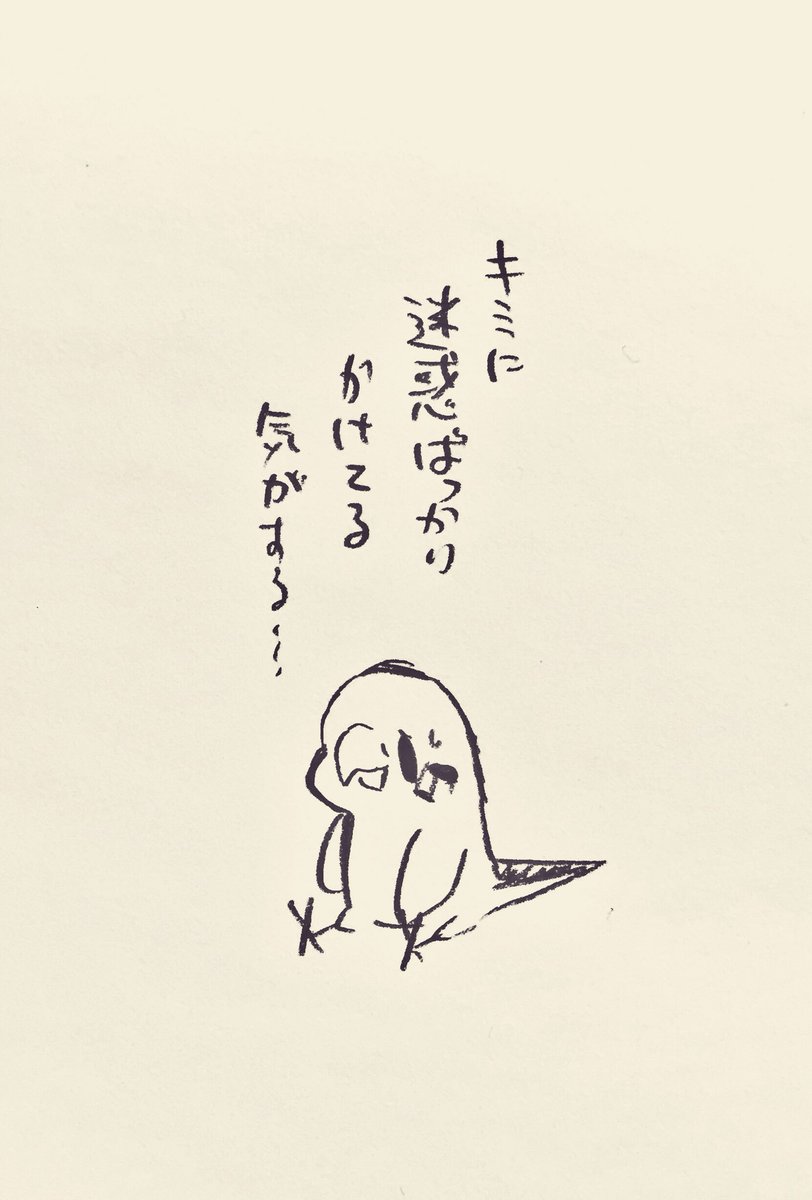 キミに
迷惑ばっかり
かけてる
気がする…